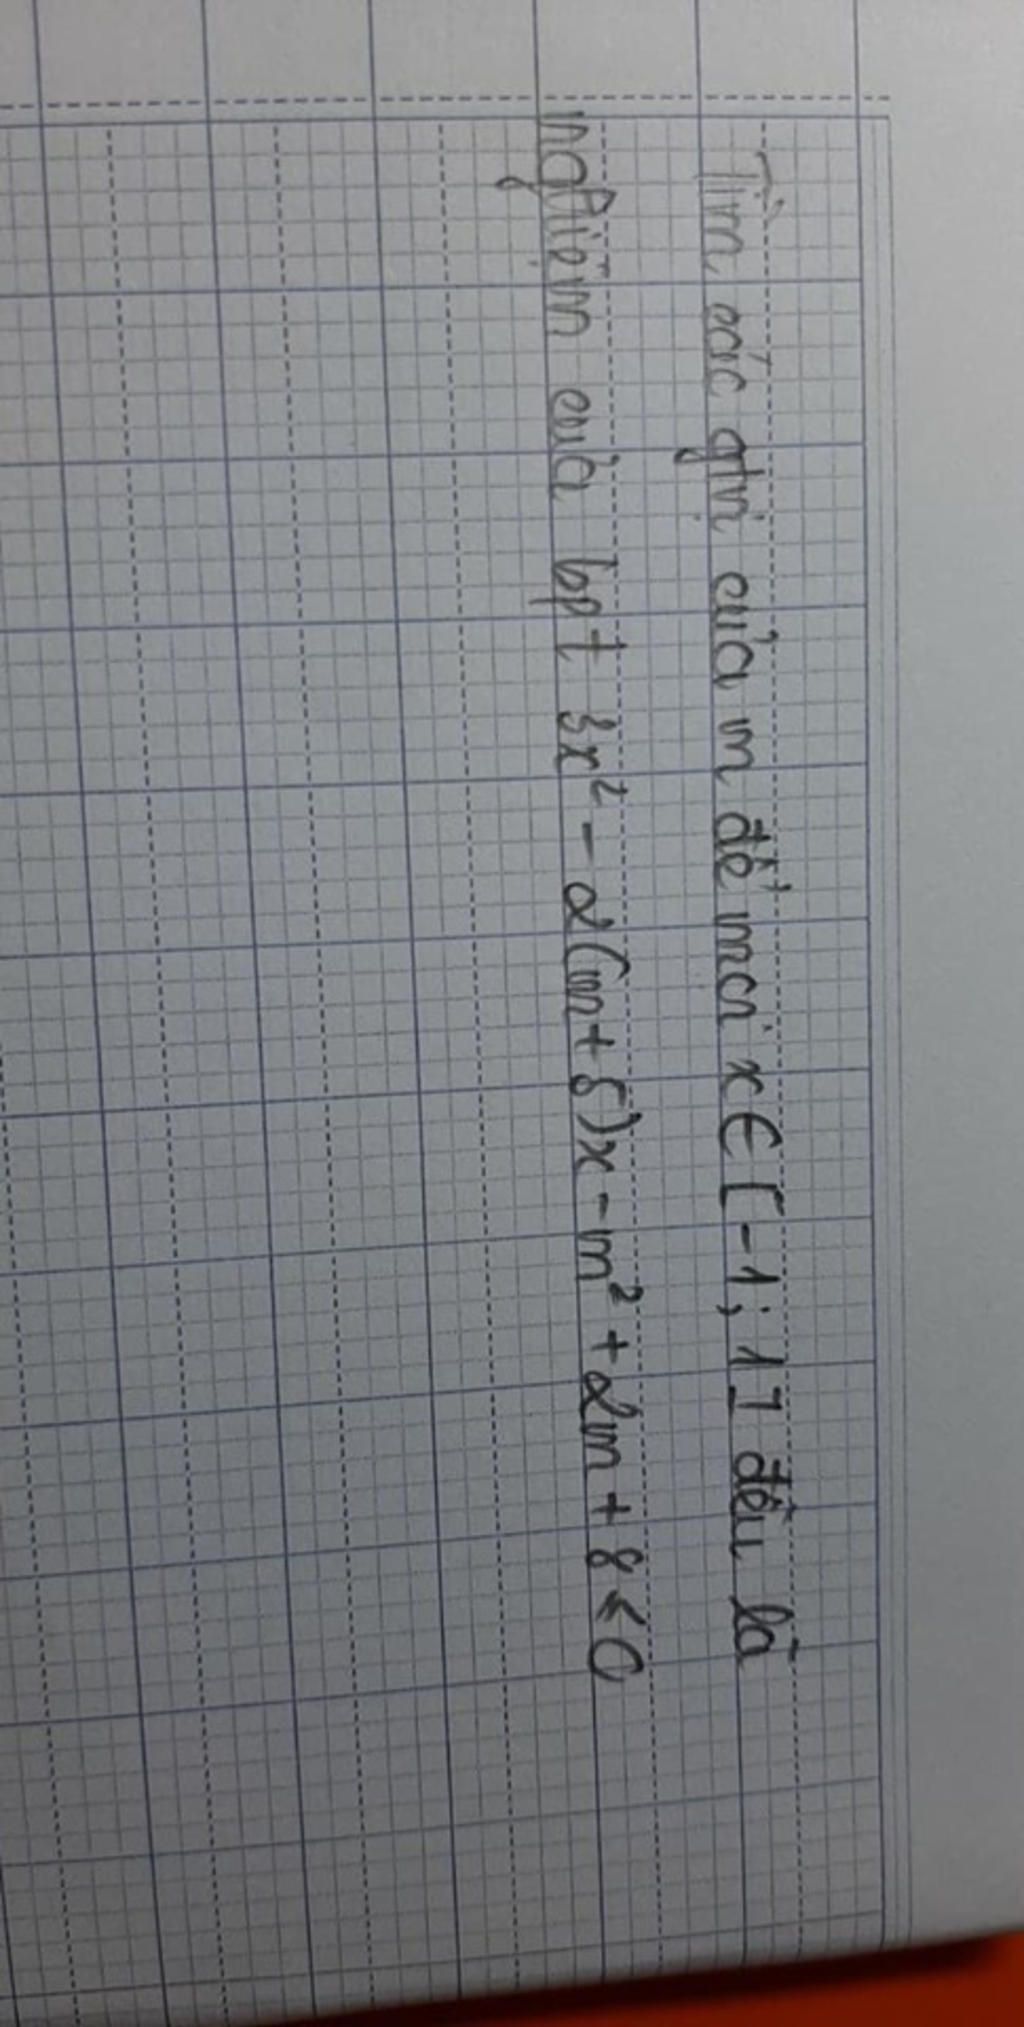 Tìm các gtrị của m để mọi x ∈ [-1; 1] đều là
nghiệm của bpt 3x² - 2(m+5)x - m² + 2m + 8 < 0